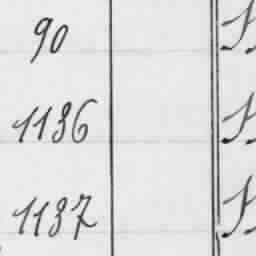 90
1136
1137